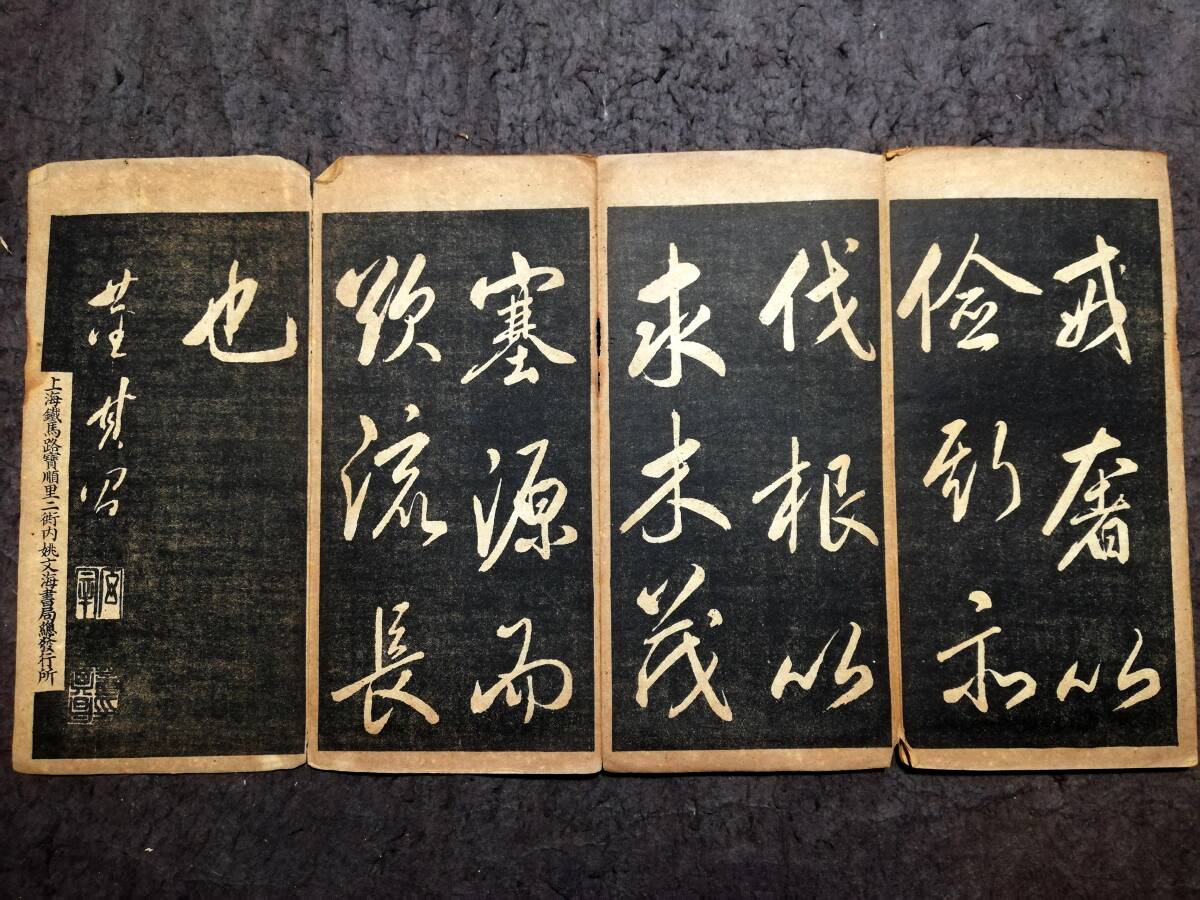 戒奢以
儉斯亦
伐根以
求木茂
塞源而
欲流長
也
董其昌
董其昌印
上海鐵馬路寶順里二衖内姚文海書局總發行所